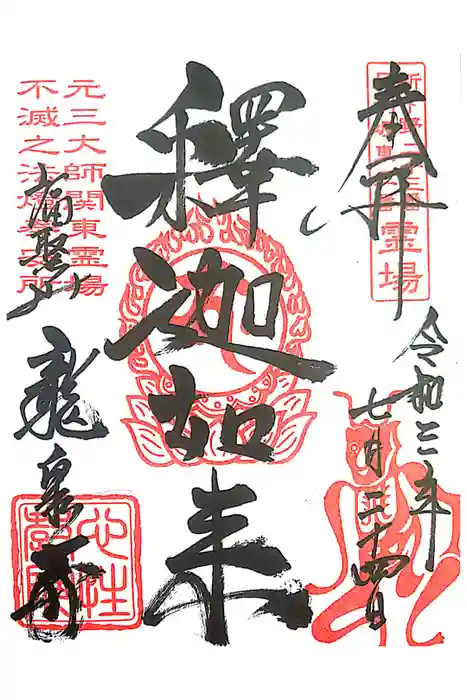 奉拝
霊場
令和三年
七月二十四日
釋迦如来
元三大師関東霊場
不滅之法燈奉安所
龍泉寺